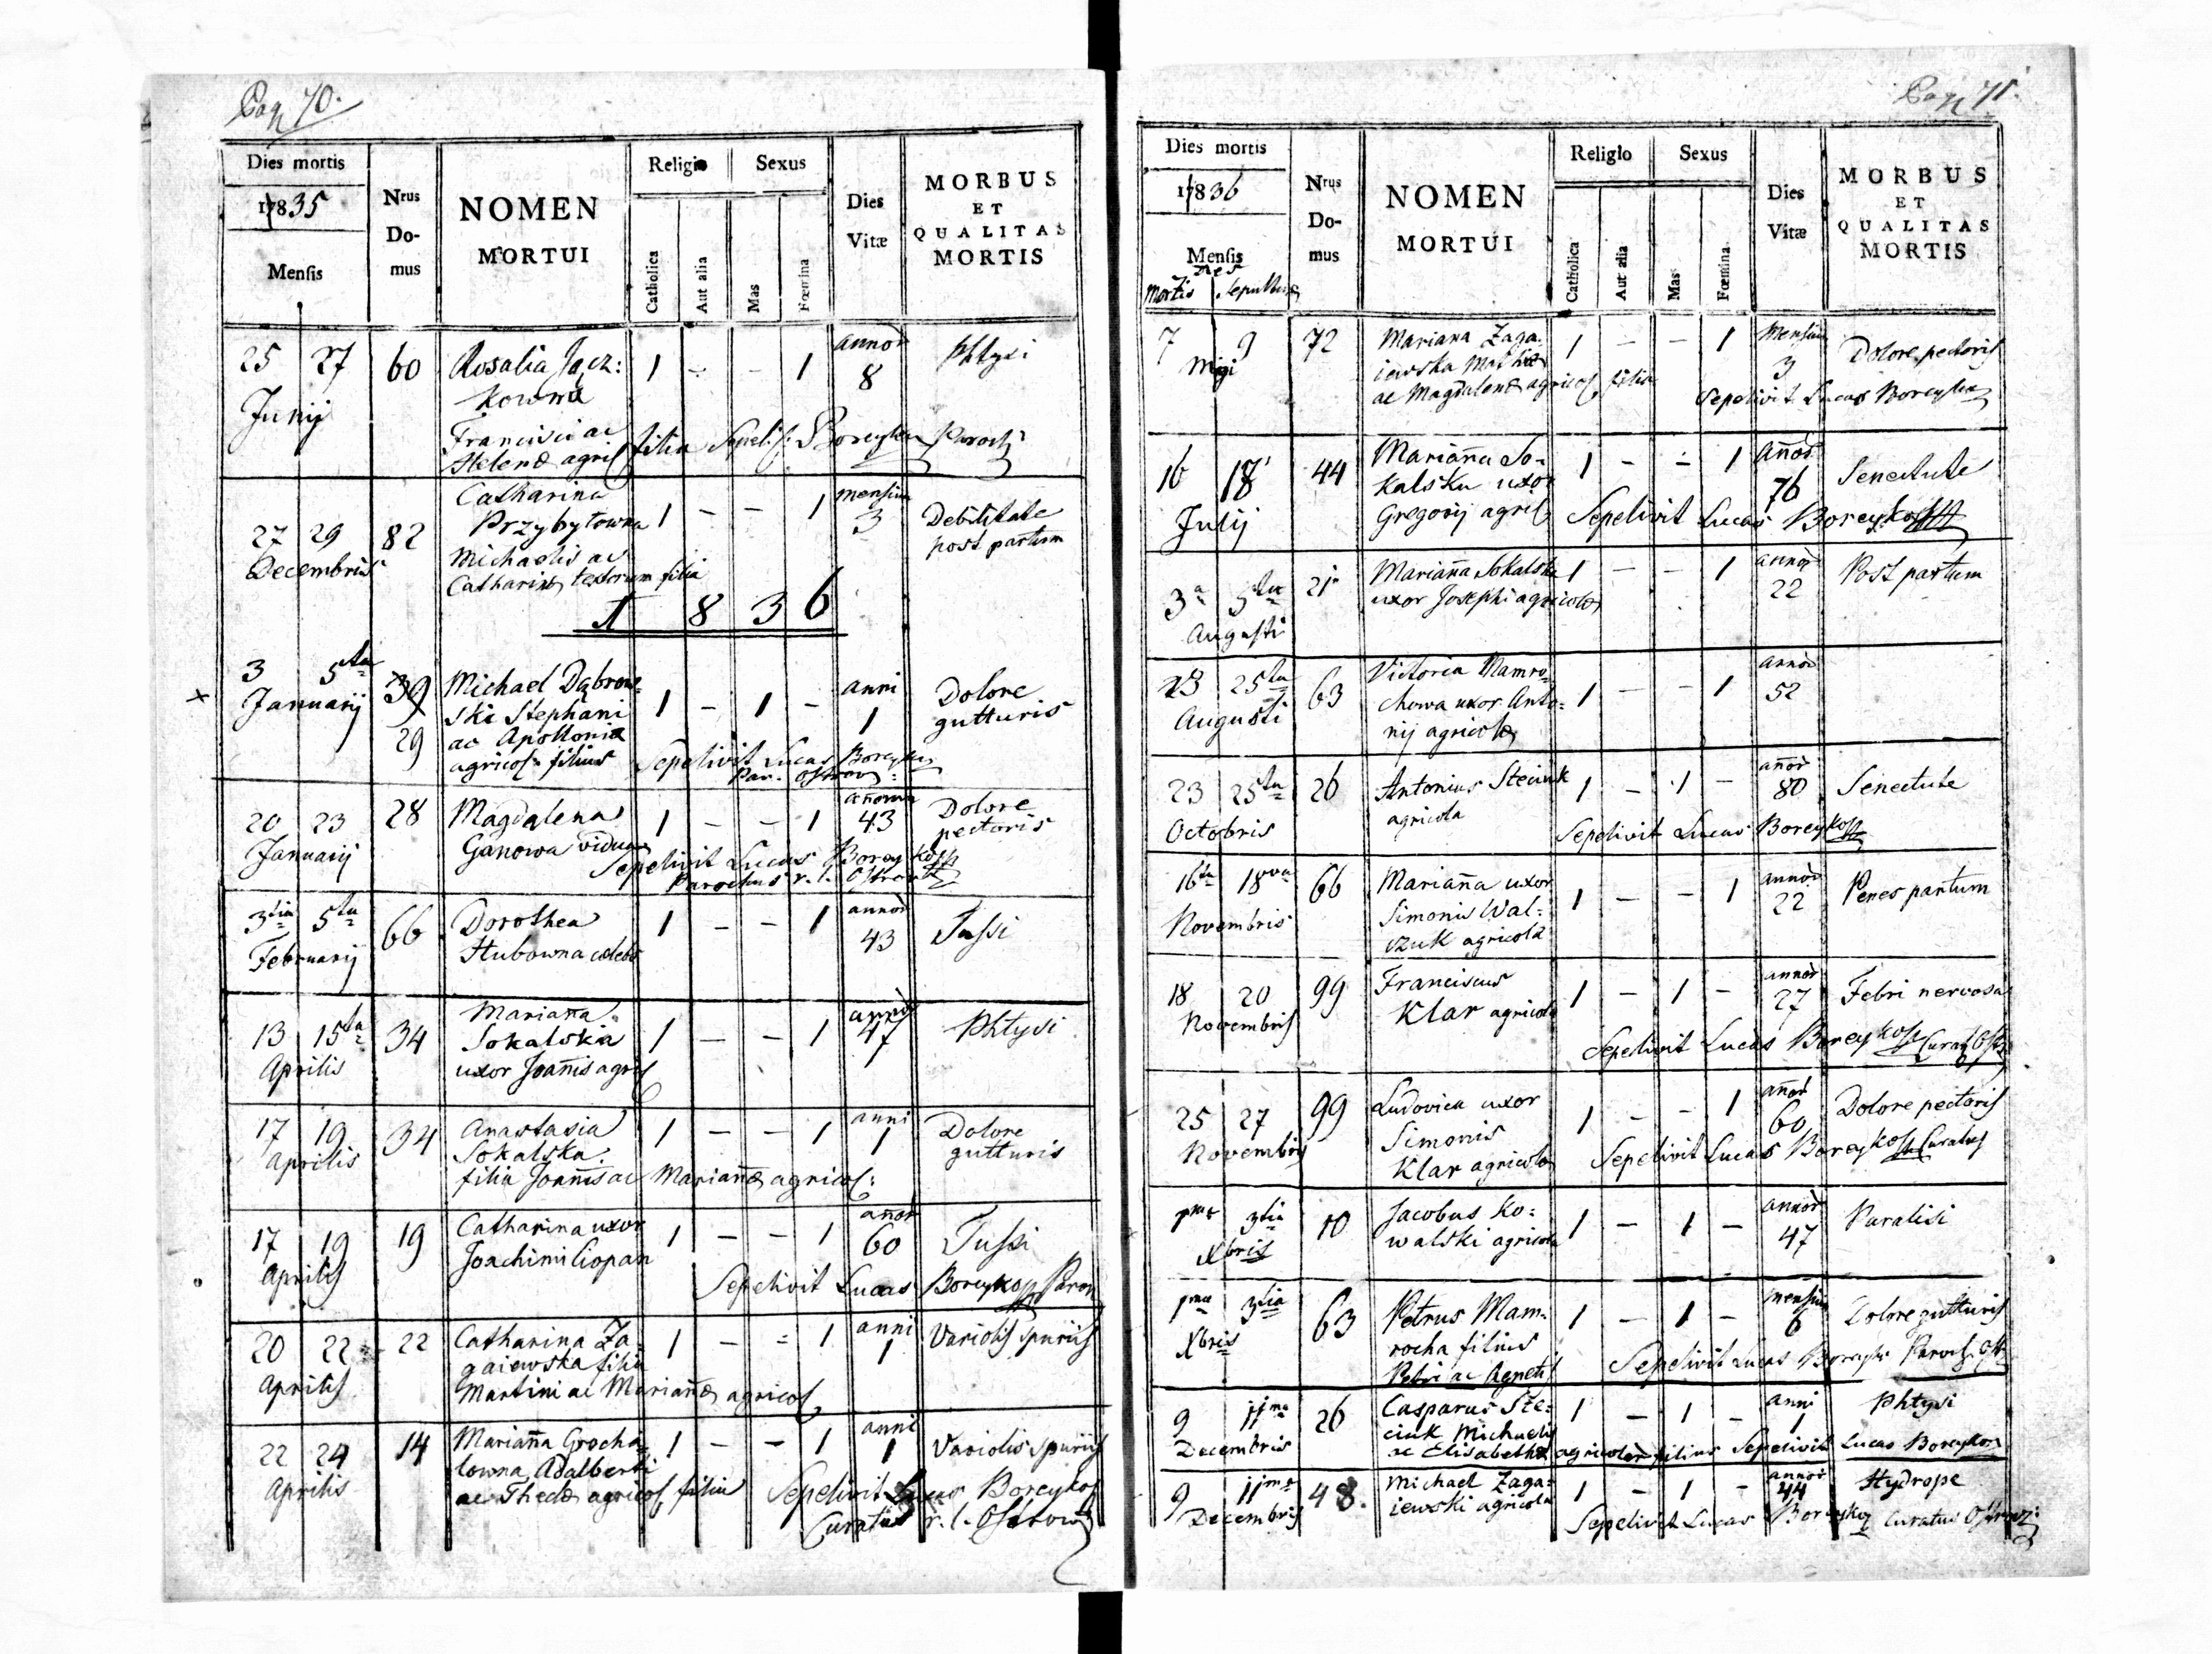 Pag 70.
Dies mortis
1835
Mensis
Nrus
Do-
mus
NOMEN
MORTUI
Religio
Catholica
Aut alia
Sexus
Mas
Fœmina
Dies
Vitæ
MORBUS
ET
QUALITAS
MORTIS
25 27 60 Rosalia 1 - - 1 annor 8 Phtysi
Junij
kowna
Francisci ac
Helenæ agric filia Sepel: Boreyko Paroch
27 29 82 Catharina 1 - - 1 mensium 3 Debilitate
Decembris Przybyłowna post partum
Michaelis ac
Catharinæ textorum filia
1 8 3 6
3 5ta 39 Michael Dąbrow- 1 - 1 - anni 1 Dolore
x Januarij 29 ski Stephani gutturis
ac Apolloniæ
agricol: filius Sepelivit Lucas Boreyko
Par. Ostrov
20 23 28 Magdalena 1 - - 1 añorum 43 Dolore
Januarij Ganowa vidua pectoris
Sepelivit Lucas Boreyko
Parochus r. l.
3tia 5ta 66 Dorothea 1 - - 1 annor 43 Tussi
Februarij Hubowna cælebs
13 15ta 34 Marianna 1 - - 1 annor 47 Phtysi
Aprilis Sokalska
uxor Joañis agric
17 19 34 Anastasia 1 - - 1 anni 1 Dolore
Aprilis Sokalska gutturis
filia Joañis ac Mariañæ agricol:
17 19 19 Catharina uxor 1 - - 1 añor 60 Tussi
Aprilis Joachimi Ciopan
Sepelivit Lucas Boreyko Paroch
20 22 22 Catharina Za- 1 - - 1 anni 1 Variolis spuriis
Aprilis gaiewska filia
Martini ac Mariañæ agricol
22 24 14 Mariañna Grocha- 1 - - 1 anni 1 Variolis spuriis
Aprilis lowna Adalberti
ac Theclæ agricol filia Sepelivit Lucas Boreyko
Curatus r. l. Ostrow
Pag 71.
Dies mortis
1836
Mensis
dies
Mortis Sepulturæ
Nrus
Do-
mus
NOMEN
MORTUI
Religio
Catholica
Aut alia
Sexus
Mas
Fœmina
Dies
Vitæ
MORBUS
ET
QUALITAS
MORTIS
7 9 72 Mariana Zaga- 1 - - 1 Mensium 3 Dolore pectoris
Maji iewska Mathiæ
ac Magdalenæ agricol filia Sepelivit Lucas Boreyko
16 18 44 Mariañna So- 1 - - 1 Añor 76 Senectute
Julij kalska uxor
Gregorij agric Sepelivit Lucas Boreyko
3a 5ta 21 Mariañna Sokalska 1 - - 1 annor 22 Post partum
Augusti uxor Josephi agricolæ
23 25ta 63 Victoria Mamro- 1 - - 1 annor 52
Augusti chowa uxor Anto-
nij agricolæ
23 25ta 26 Antonius Steciuk 1 - 1 - añor 80 Senectute
Octobris agricola Sepelivit Lucas Boreyko
16ta 18va 66 Mariañna uxor 1 - - 1 annor 22 Penes partum
Novembris Simonis Wal-
czuk agricolæ
18 20 99 Franciscus 1 - 1 - annor 27 Febri nervosa
Novembris Klar agricola
Sepelivit Lucas Boreyko Curat Ostr
25 27 99 Ludovica uxor 1 - - 1 añor 60 Dolore pectoris
Novembris Simonis
Klar agricolæ Sepelivit Lucas Boreyko Curatus
1ma 3tia 10 Jacobus Ko- 1 - 1 - annor 47 Paralisi
Xbris walski agricola
1ma 3tia 63 Petrus Mam- 1 - 1 - mensium 6 Dolore gutturis
Xbris rocha filius
Petri ac Agnetis Sepelivit Lucas Boreyko Paroch. Ost
9 11ma 26 Casparus Ste- 1 - 1 - anni 1 Phtysi
Decembris ciuk Michaelis
ac Elisabethæ agricolar filius Sepelivit Lucas Boreyko
9 11ma 48. Michael Zaga- 1 - 1 - annor 44 Hydrope
Decembris iewski agricola
Sepelivit Lucas Boreyko Curatus